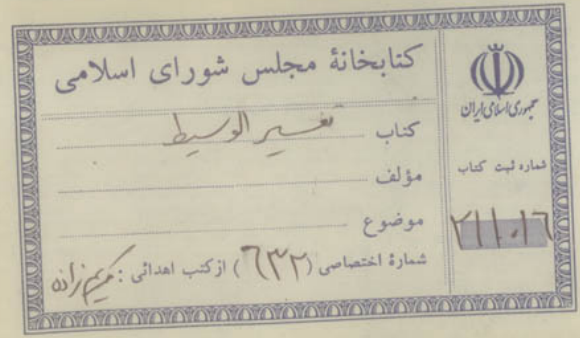 کتابخانهٔ مجلس شورای اسلامی
کتاب تفسیر الوسیط
مؤلف
موضوع
شمارهٔ اختصاصی (۶۳۲) از کتب اهدائی : کریم‌زاده
جمهوری اسلامی ایران
شماره ثبت کتاب
۲۱۱۰۱۶